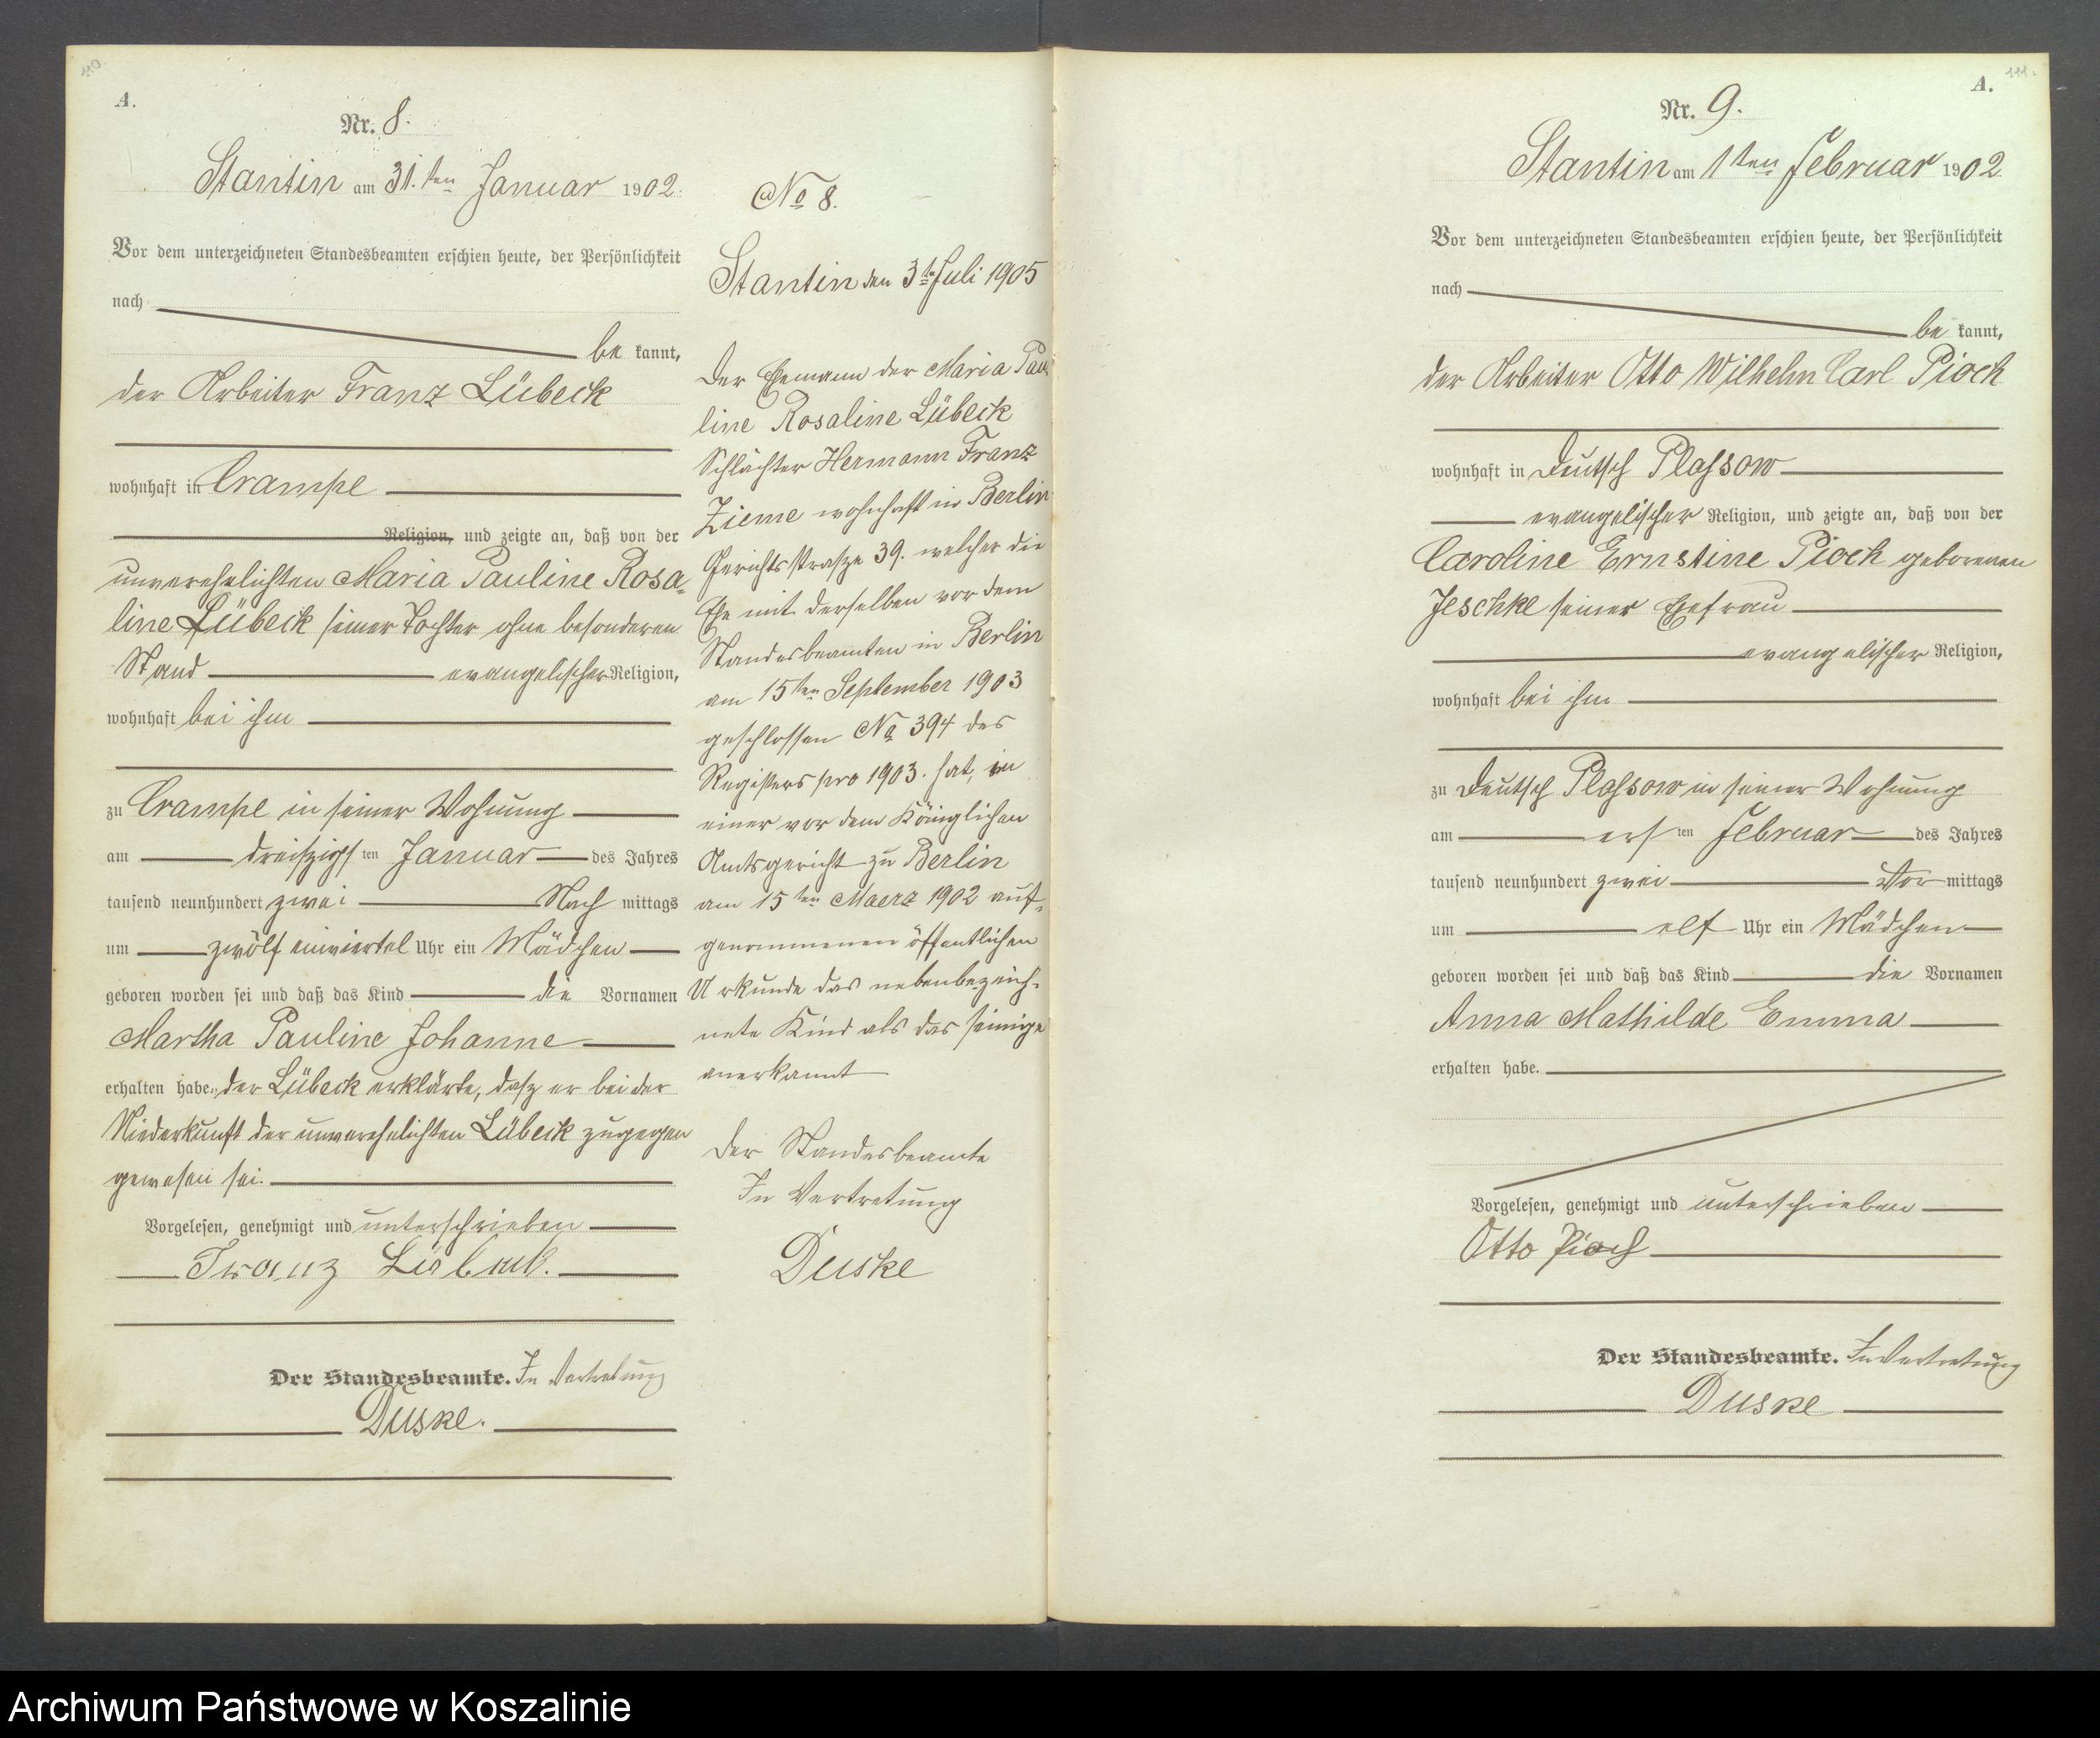 110.
A.
Nr. 8.
Stantin am 31. ten Januar 1902.
Vor dem unterzeichneten Standesbeamten erschien heute, der Persönlichkeit
nach
be kannt,
der Arbeiter Franz Lübeck
wohnhaft in Crampe
Religion, und zeigte an, daß von der
unverehelichten Maria Pauline Rosa-
line Lübeck seiner Tochter ohne besonderen
Stand evangelischer Religion,
wohnhaft bei ihm
zu Crampe in seiner Wohnung
am dreiszigsten Januar des Jahres
tausend neunhundert zwei Nach mittags
um zwölf einviertel Uhr ein Mädchen
geboren worden sei und daß das Kind die Vornamen
Martha Pauline Johanne
erhalten habe. der Lübeck erklärte, dasz er bei der
Niederkunft der unverehelichten Lübeck zugegen
gewesen sei.
Vorgelesen, genehmigt und unterschrieben
Franz Lübeck.
Der Standesbeamte. In Vertretung
Duske.
No 8.
Stantin den 3ten Juli 1905
Der Ehemann der Maria Pau-
line Rosaline Lübeck
Schlächter Hermann Franz
Zieme wohnhaft in Berlin
Gerichtsstrasze 39. welcher die
Ehe mit derselben vor dem
Standesbeamten in Berlin
am 15ten September 1903
geschlossen No 394 des
Registers pro 1903. hat, in
einer vor dem Königlichen
Amtsgericht zu Berlin
am 15ten Maerz 1902 auf-
genommenen öffentlichen
Urkunde das nebenbezeich-
nete Kind als das seinige
anerkannt
Der Standesbeamte
In Vertretung
Duske
111.
A.
Nr. 9.
Stantin am 1ten Februar 1902
Vor dem unterzeichneten Standesbeamten erschien heute, der Persönlichkeit
nach
be kannt,
der Arbeiter Otto Wilhelm Carl Pioch
wohnhaft in Deutsch Plassow
evangelischer Religion, und zeigte an, daß von der
Caroline Ernstine Pioch geborenen
Jeschke seiner Ehefrau
evangelischer Religion,
wohnhaft bei ihm
zu Deutsch Plassow in seiner Wohnung
am ersten Februar des Jahres
tausend neunhundert zwei Vor mittags
um elf Uhr ein Mädchen
geboren worden sei und daß das Kind die Vornamen
Anna Mathilde Emma
erhalten habe.
Vorgelesen, genehmigt und unterschrieben
Otto Pioch
Der Standesbeamte. In Vertretung
Duske
Archiwum Państwowe w Koszalinie